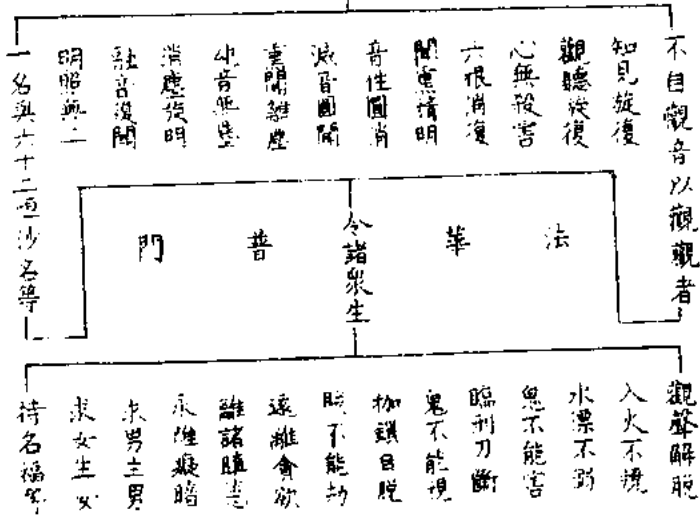 不自觀音以觀觀者
知見旋復
觀聽旋復
心無殺害
六根消復
聞熏精明
音性圓消
滅音圓聞
熏聞離塵
純音無塵
消塵旋明
融音復聞
明照無二
一名與六十二恒沙名等
法華
普門
令諸眾生
觀聲解脫
入火不燒
水漂不溺
鬼不能害
臨刑刀斷
鬼不能視
枷鎖自脫
賊不能劫
遠離貪欲
離諸瞋恚
永離癡暗
求男生男
求女生女
持名福等